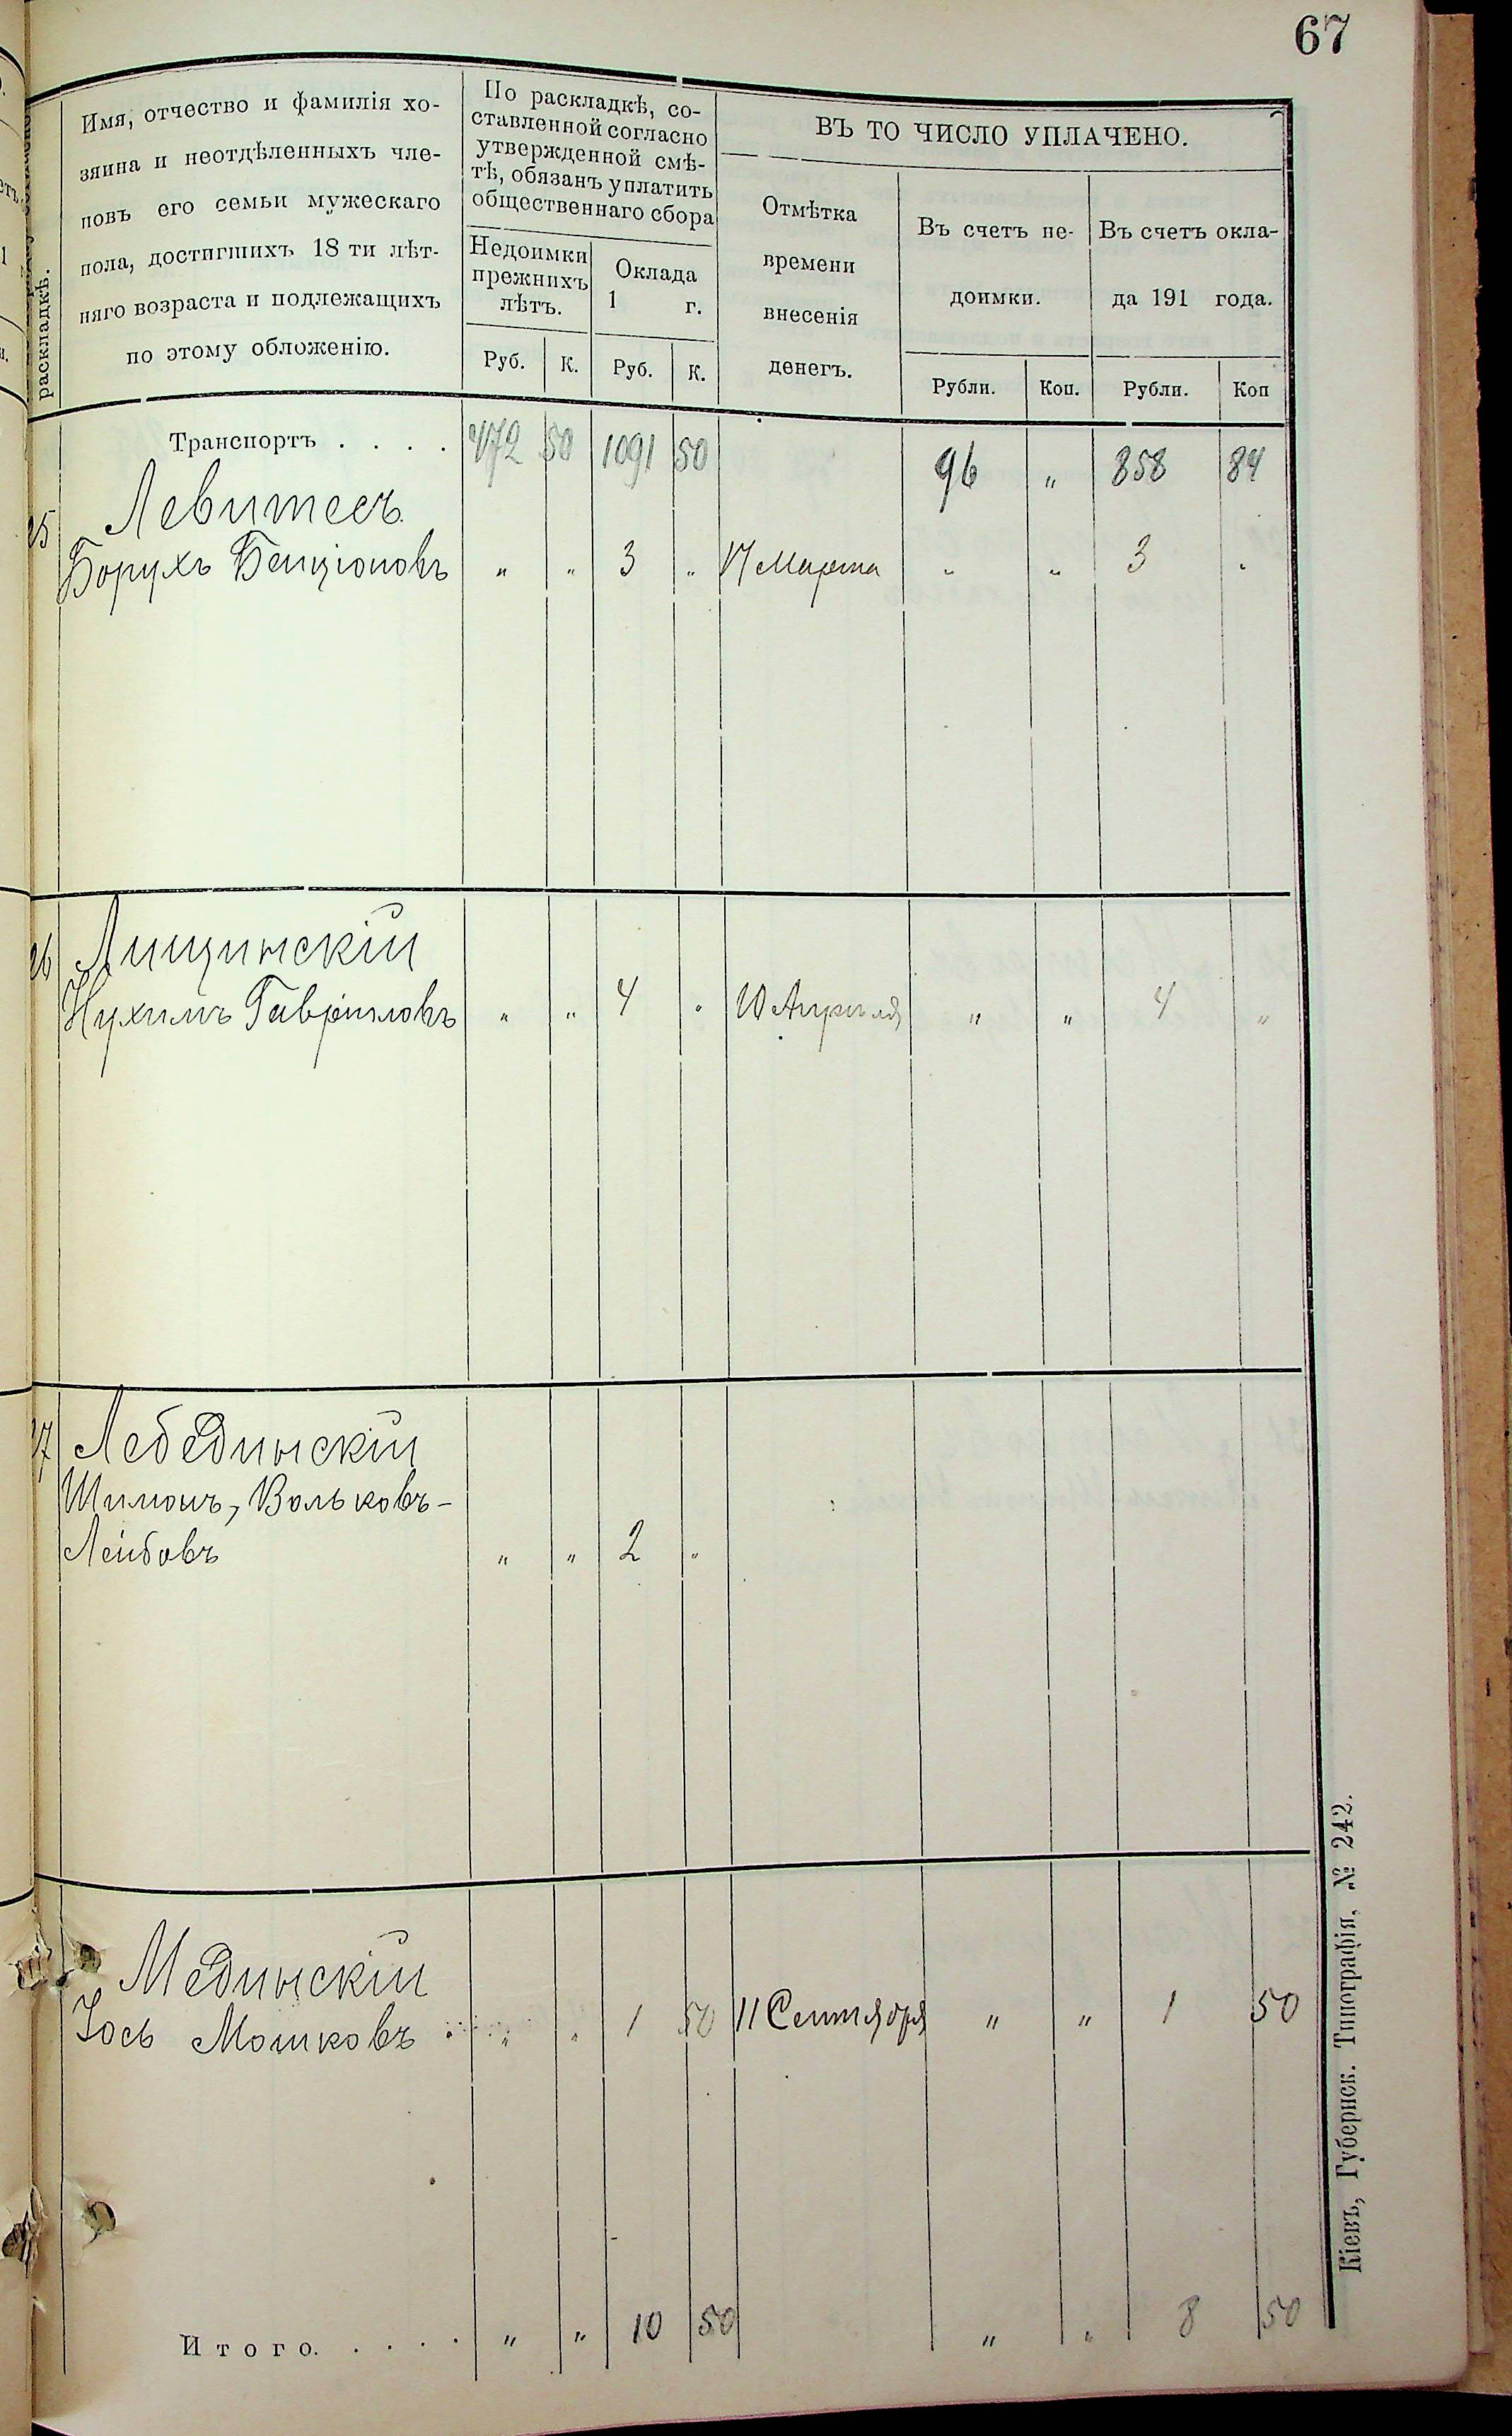 67
Имя, отчество и фамилія хо-
зяина и неотдѣленныхъ чле-
новъ его семьи мужескаго
пола, достигшихъ 18 ти лѣт-
няго возраста и подлежащихъ
по этому обложенію.
раскладкѣ.
По раскладкѣ, со-
ставленной согласно
утвержденной смѣ-
тѣ, обязанъ уплатить
общественнаго сбора
Недоимки
прежнихъ
лѣтъ.
Оклада
1 г.
Руб. К. Руб. К.
ВЪ ТО ЧИСЛО УПЛАЧЕНО.
Отмѣтка
времени
внесенія
денегъ.
Въ счетъ не-
доимки.
Въ счетъ окла-
да 191 года.
Рубли. Коп. Рубли. Коп
Транспортъ . . . . 472 50 1091 50 96 „ 858 84
25 Левитесъ
Борухъ Бенціоновъ „ „ 3 „ 17 Марта „ „ 3 „
26 Лищинскій
Нухимъ Гавріиловъ „ „ 4 „ 10 Апрѣля „ „ 4 „
27 Лебединскій
Шимонъ, Вольковъ-
Лейбовъ „ „ 2 „
Мединскій
Іось Мошковъ „ „ 1 50 11 Сентября „ „ 1 50
Итого. . . . . „ „ 10 50 „ „ 8 50
Кіевъ, Губернск. Типографія, № 242.